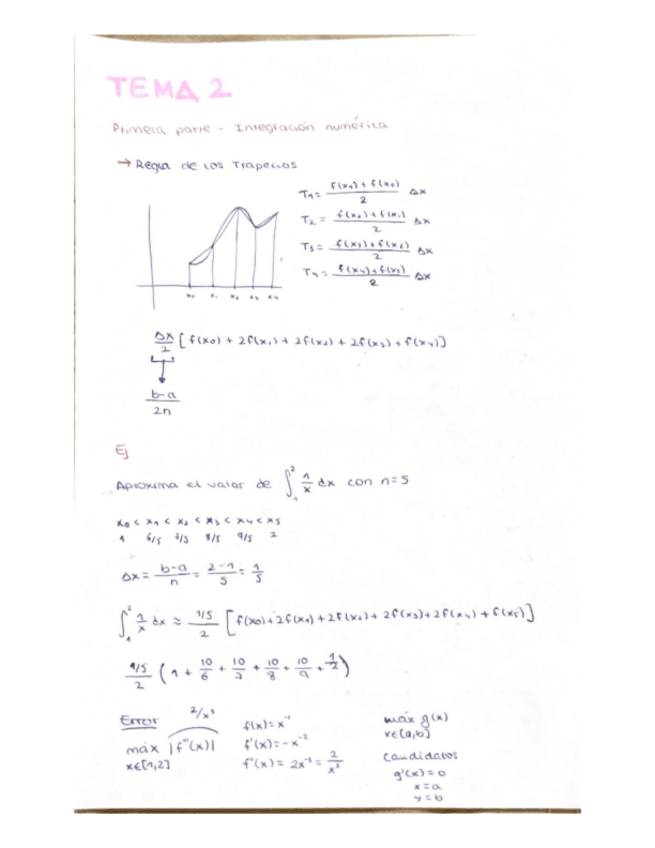 TEMA 2
Primera parte - Integración numérica
→ Regla de los Trapecios
T₁ = (f(x₁) + f(x₀))/2 Δx
T₂ = (f(x₂) + f(x₁))/2 Δx
T₃ = (f(x₃) + f(x₂))/2 Δx
T₄ = (f(x₄) + f(x₃))/2 Δx
x₀ x₁ x₂ x₃ x₄
Δx/2 [f(x₀) + 2f(x₁) + 2f(x₂) + 2f(x₃) + f(x₄)]
(b-a)/2n
Ej
Aproxima el valor de ∫₁² 1/x dx con n=5
x₀ < x₁ < x₂ < x₃ < x₄ < x₅
1 6/5 7/5 8/5 9/5 2
Δx = (b-a)/n = (2-1)/5 = 1/5
∫₁² 1/x dx ≈ (1/5)/2 [f(x₀) + 2f(x₁) + 2f(x₂) + 2f(x₃) + 2f(x₄) + f(x₅)]
(1/5)/2 (1 + 10/6 + 10/7 + 10/8 + 10/9 + 1/2)
Error
2/x³
máx |f''(x)|
x∈[1,2]
f(x) = x⁻¹
f'(x) = -x⁻²
f''(x) = 2x⁻³ = 2/x³
máx g(x)
x∈[a,b]
Candidatos
g'(x) = 0
x = a
y = b